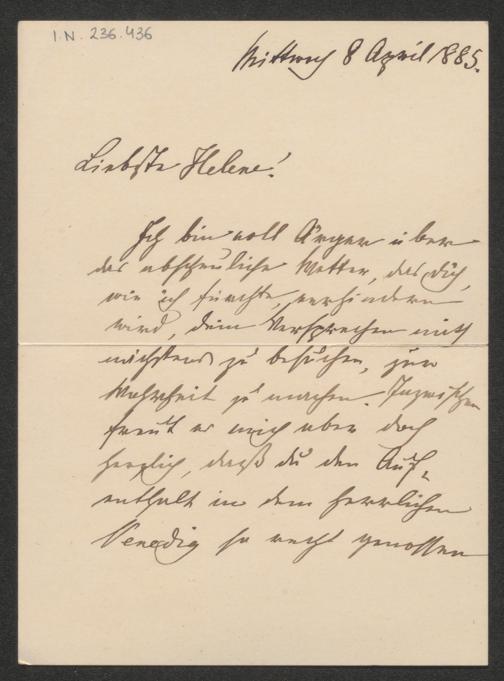 I.N. 236.436
Mittwoch 8 April 1885.
Liebste Helene!
Ich bin voll Ärger über
das abscheuliche Wetter, das dich,
wie ich fürchte, verhindern
wird, dein Versprechen mich
nächstens zu besuchen, zur
Wahrheit zu machen. Inzwischen
freut es mich aber doch
herzlich, daß du den Auf-
enthalt in dem herrlichen
Venedig so recht genossen